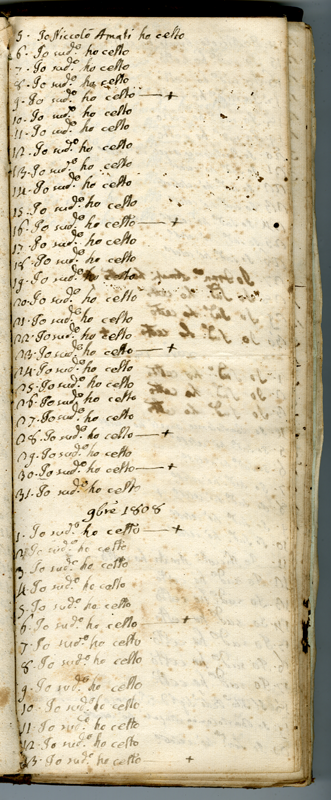 5. Io Niccolò Amati ho celto
6. Io sud.º ho celto
7. Io sud.º ho celto
8. Io sud.º ho celto
9. Io sud.º ho celto — +
10. Io sud.º ho celto
11. Io sud.º ho celto
12. Io sud.º ho celto
13. Io sud.º ho celto
14. Io sud.º ho celto
15. Io sud.º ho celto
16. Io sud.º ho celto — +
17. Io sud.º ho celto
18. Io sud.º ho celto
19. Io sud.º ho celto
20. Io sud.º ho celto
21. Io sud.º ho celto
22. Io sud.º ho celto
23. Io sud.º ho celto — +
24. Io sud.º ho celto
25. Io sud.º ho celto
26. Io sud.º ho celto
27. Io sud.º ho celto
28. Io sud.º ho celto — +
29. Io sud.º ho celto
30. Io sud.º ho celto — +
31. Io sud.º ho celto
9bre 1808
1. Io sud.º ho celto — +
2. Io sud.º ho celto
3. Io sud.º ho celto
4. Io sud.º ho celto
5. Io sud.º ho celto
6. Io sud.º ho celto — +
7. Io sud.º ho celto
8. Io sud.º ho celto
9. Io sud.º ho celto
10. Io sud.º ho celto
11. Io sud.º ho celto
12. Io sud.º ho celto
13. Io sud.º ho celto — +